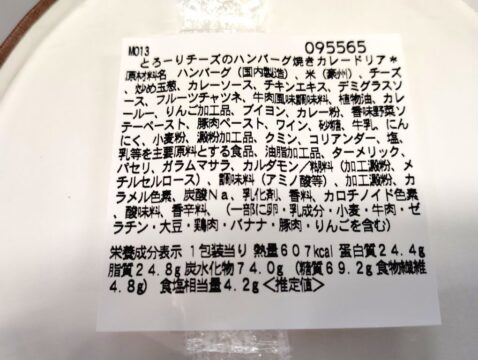 M013 095565
とろーりチーズのハンバーグ焼きカレードリア*
原材料名 ハンバーグ(国内製造)、米(豪州)、チーズ
、炒め玉葱、カレーソース、チキンエキス、デミグラスソ
ース、フルーツチャツネ、牛肉風味調味料、植物油、カレ
ールー、りんご加工品、ブイヨン、カレー粉、香味野菜ソ
テーペースト、豚肉ペースト、ワイン、砂糖、牛乳、にん
にく、小麦粉、澱粉加工品、クミン、コリアンダー、塩、
乳等を主要原料とする食品、油脂加工品、ターメリック、
パセリ、ガラムマサラ、カルダモン/糊料(加工澱粉、メ
チルセルロース)、調味料(アミノ酸等)、加工澱粉、カ
ラメル色素、炭酸Na、乳化剤、香料、カロチノイド色素
、酸味料、香辛料、(一部に卵・乳成分・小麦・牛肉・ゼ
ラチン・大豆・鶏肉・バナナ・豚肉・りんごを含む)
栄養成分表示 1包装当り 熱量607kcal 蛋白質24.4g
脂質24.8g 炭水化物74.0g (糖質69.2g 食物繊維
4.8g) 食塩相当量4.2g<推定値>